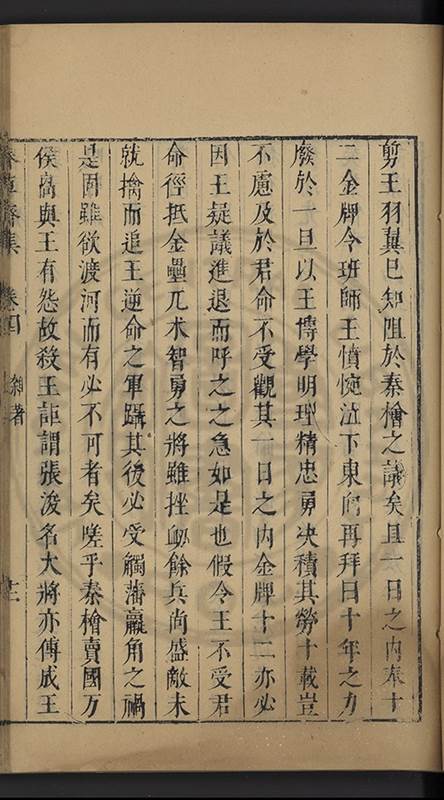 剪王羽翼已知阻於秦檜之議矣且一日之內奉十
二金牌令班師王憤惋泣下東向再拜曰十年之力
廢於一旦以王博學明理精忠勇决積其勞十載豈
不慮及於君命不受觀其一日之內金牌十二亦必
因王疑議進退而呼之之急如是也假令王不受君
命徑抵金壘兀朮智勇之將雖挫衂餘兵尚盛敵未
就擒而追王逆命之軍躡其後必受觸藩羸角之禍
是固雖欲渡河而有必不可者矣嗟乎秦檜賣國万
俟卨與王有怨故殺王詎謂張浚名大將亦傳成王
齋集 卷四 雜著